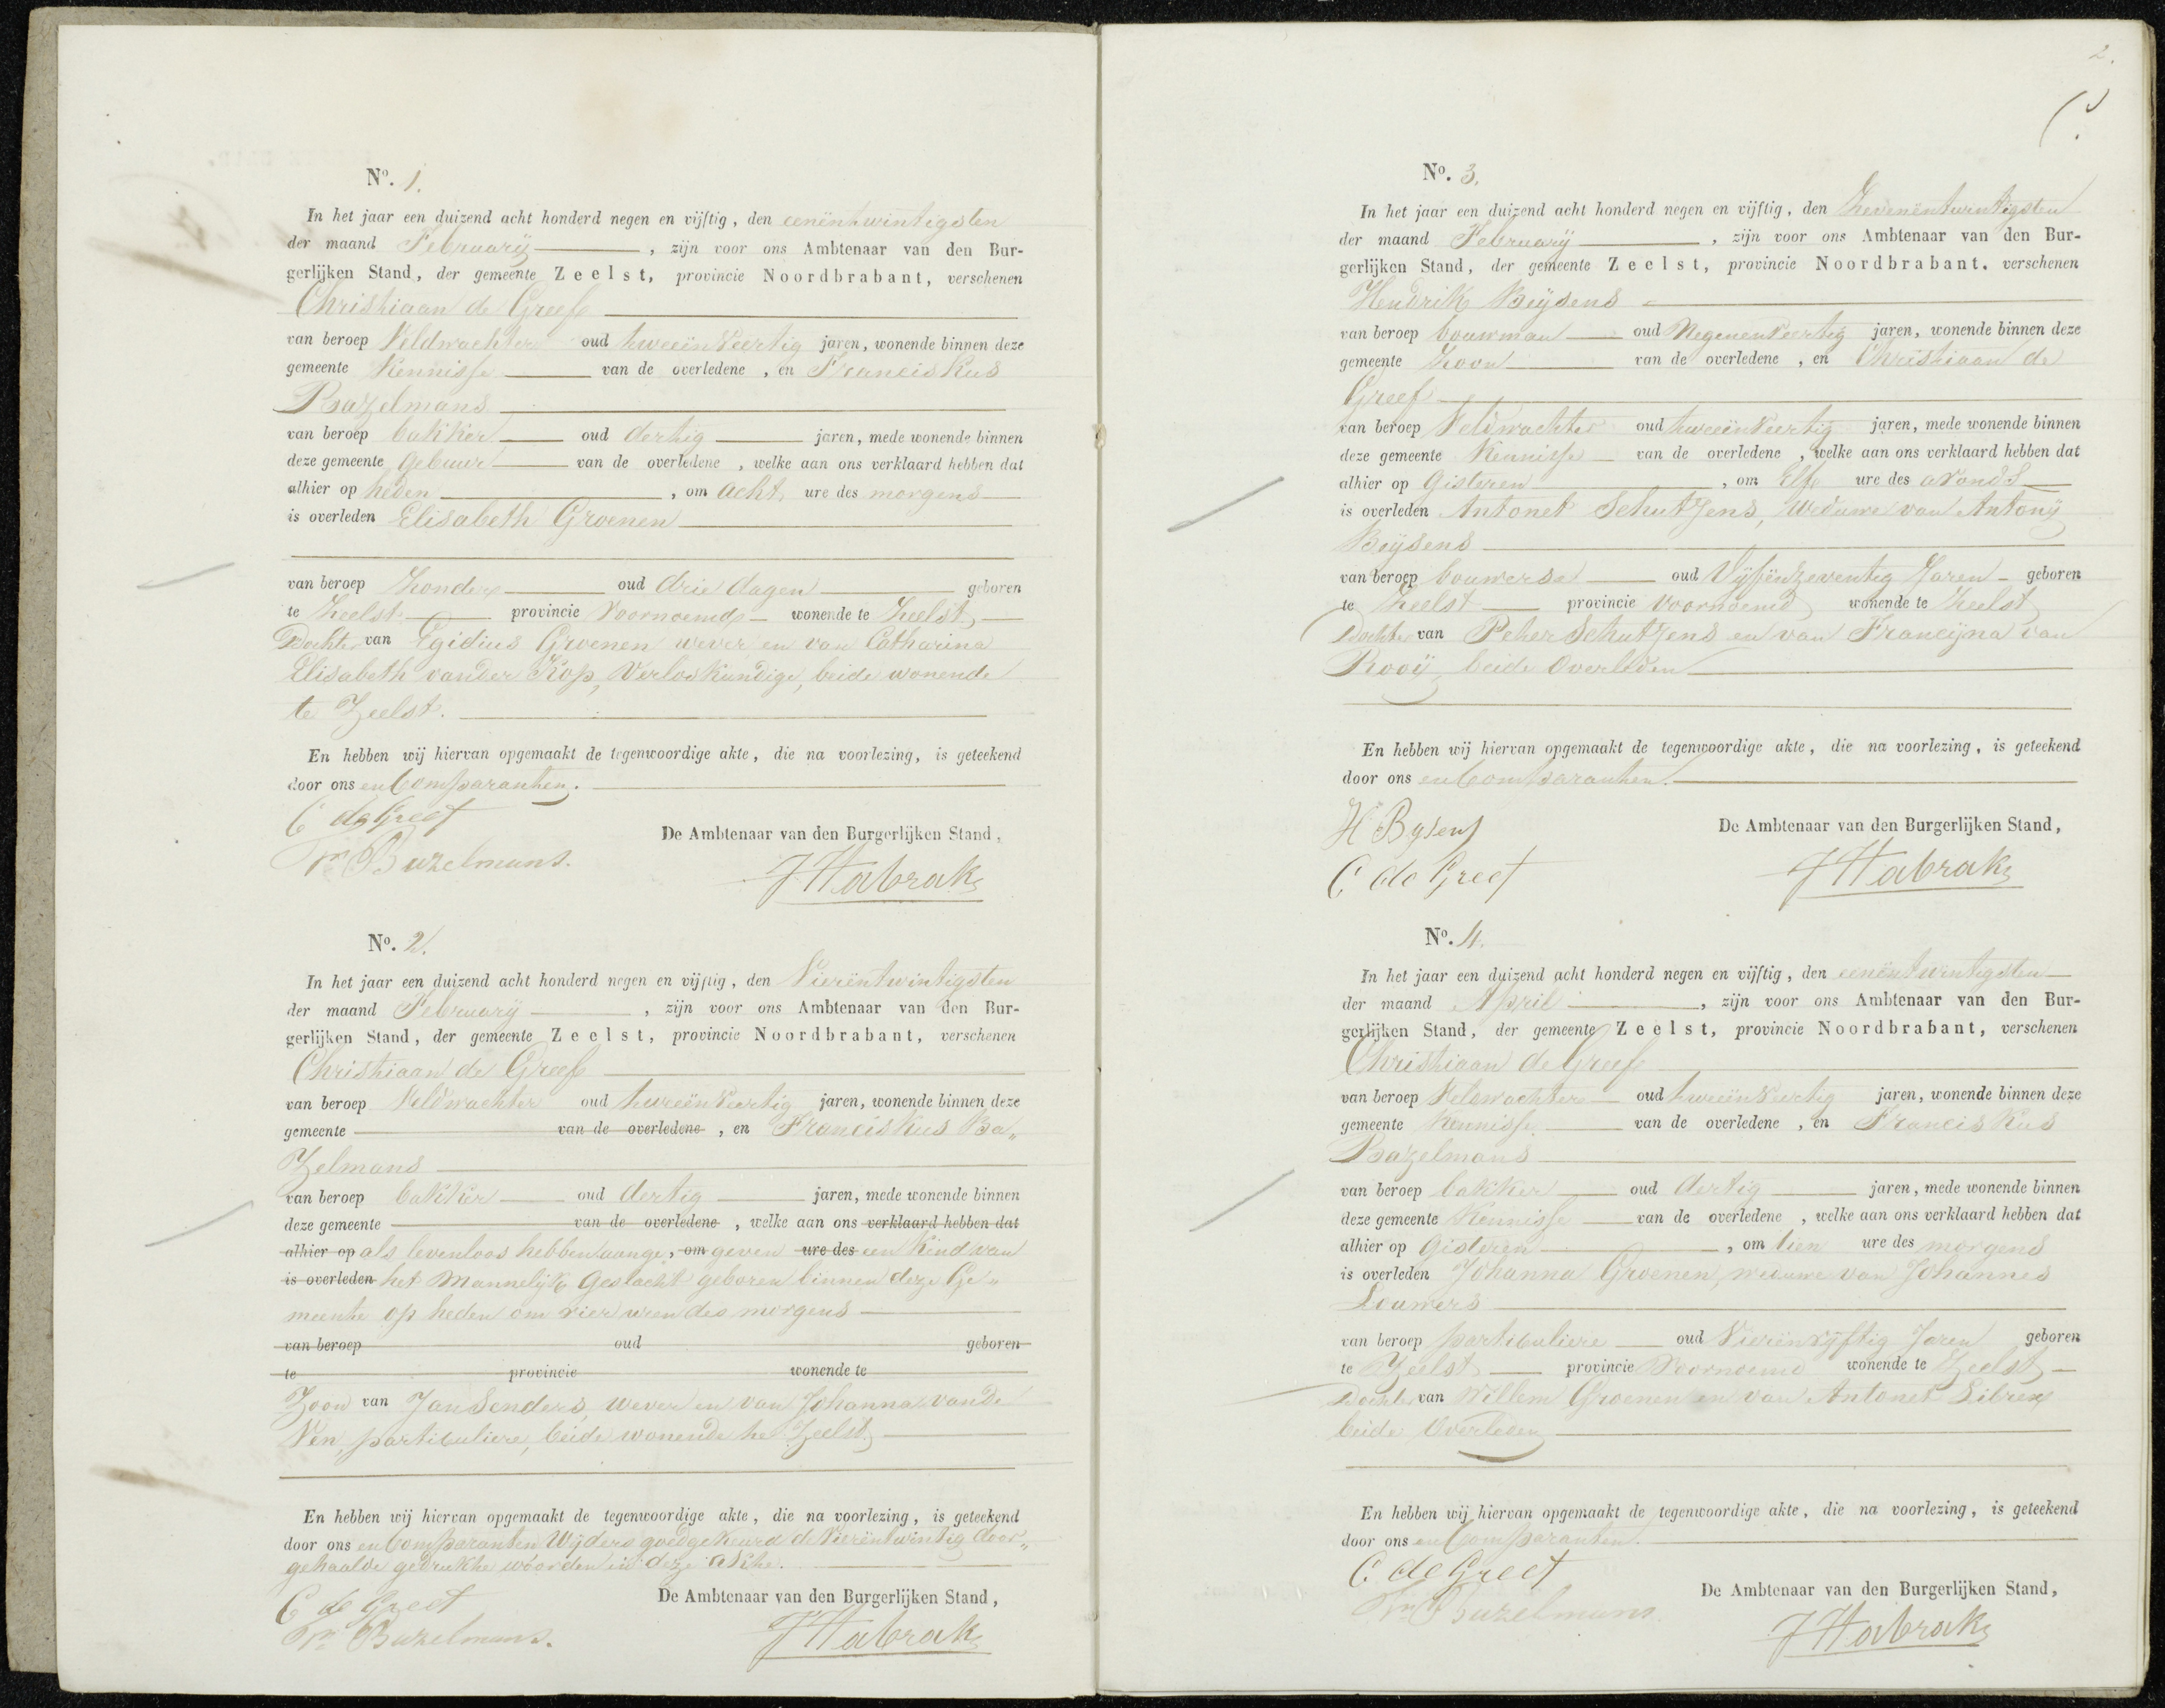 No. 1.
In het jaar een duizend acht honderd negen en vijftig, den eenëntwintigsten
der maand Februarij, zijn voor ons Ambtenaar van den Bur-
gerlijken Stand, der gemeente Zeelst, provincie Noordbrabant, verschenen
Christiaan de Greef
van beroep Veldwachter oud tweeënveertig jaren, wonende binnen deze
gemeente Kennisse van de overledene, en Franciskus
Bazelmans
van beroep bakker oud dertig jaren, mede wonende binnen
deze gemeente Gebuur van de overledene, welke aan ons verklaard hebben dat
alhier op heden, om acht ure des morgens
is overleden Elisabeth Groenen
van beroep Zonder oud drie dagen geboren
te Zeelst provincie voornoemd wonende te Zeelst
Dochter van Egidius Groenen wever en van Catharina
Elisabeth vander Kop, Verloskundige, beide wonende
te Zeelst.
En hebben wij hiervan opgemaakt de tegenwoordige akte, die na voorlezing, is geteekend
door ons en Comparanten.
C de Greef
Fr. Bazelmans.
De Ambtenaar van den Burgerlijken Stand,
J Habrak
No. 2.
In het jaar een duizend acht honderd negen en vijftig, den Vierëntwintigsten
der maand Februarij, zijn voor ons Ambtenaar van den Bur-
gerlijken Stand, der gemeente Zeelst, provincie Noordbrabant, verschenen
Christiaan de Greef
van beroep Veldwachter oud tweeënveertig jaren, wonende binnen deze
gemeente van de overledene, en Franciskus Ba„
zelmans
van beroep bakker oud dertig jaren, mede wonende binnen
deze gemeente van de overledene, welke aan ons verklaard hebben dat
alhier op als levenloos hebben aange, om geven ure des een Kind van
is overleden het Mannelijk Geslacht geboren binnen deze Ge„
meente op heden om vier uren des morgens
van beroep oud geboren
te provincie wonende te
Zoon van Jan Senders, wever en van Johanna vande
Ven, particuliere, beide wonende te Zeelst
En hebben wij hiervan opgemaakt de tegenwoordige akte, die na voorlezing, is geteekend
door ons en Comparanten Wijders goedgekeurd de Vierëntwintig door„
gehaalde gedrukte woorden in deze akte.
C de Greef
Fr. Bazelmans.
De Ambtenaar van den Burgerlijken Stand,
J Habrak
2.
No. 3.
In het jaar een duizend acht honderd negen en vijftig, den Zevenëntwintigsten
der maand Februarij, zijn voor ons Ambtenaar van den Bur-
gerlijken Stand, der gemeente Zeelst, provincie Noordbrabant. verschenen
Hendrik Beijsens
van beroep bouwman oud Negenenveertig jaren, wonende binnen deze
gemeente Zoon van de overledene, en Christiaan de
Greef
van beroep Veldwachter oud tweeënveertig jaren, mede wonende binnen
deze gemeente Kennisse van de overledene, welke aan ons verklaard hebben dat
alhier op Gisteren, om Elf ure des avonds
is overleden Antonet Schutjens, Weduwe van Antonij
Beijsens
van beroep bouwerse oud Vijfënzeventig Jaren geboren
te Zeelst provincie voornoemd wonende te Zeelst
Dochter van Peter Schutjens en van Francijna van
Rooij, beide Overleden
En hebben wij hiervan opgemaakt de tegenwoordige akte, die na voorlezing, is geteekend
door ons en Comparanten.
H Bysens
C de Greef
De Ambtenaar van den Burgerlijken Stand,
J Habrak
No. 4.
In het jaar een duizend acht honderd negen en vijftig, den eenëntwintigsten
der maand April, zijn voor ons Ambtenaar van den Bur-
gerlijken Stand, der gemeente Zeelst, provincie Noordbrabant, verschenen
Christiaan de Greef
van beroep Veldwachter oud tweeënveertig jaren, wonende binnen deze
gemeente Kennisse van de overledene, en Franciskus
Bazelmans
van beroep bakker oud dertig jaren, mede wonende binnen
deze gemeente Kennisse van de overledene, welke aan ons verklaard hebben dat
alhier op Gisteren, om tien ure des morgens
is overleden Johanna Groenen, weduwe van Johannes
Louwers
van beroep particuliere oud Vierënvijftig Jaren geboren
te Zeelst provincie Voornoemd wonende te Zeelst
Dochter van Willem Groenen en van Antonet Librex
beide Overleden
En hebben wij hiervan opgemaakt de tegenwoordige akte, die na voorlezing, is geteekend
door ons en Comparanten.
C de Greef
Fr. Bazelmans
De Ambtenaar van den Burgerlijken Stand,
J Habrak